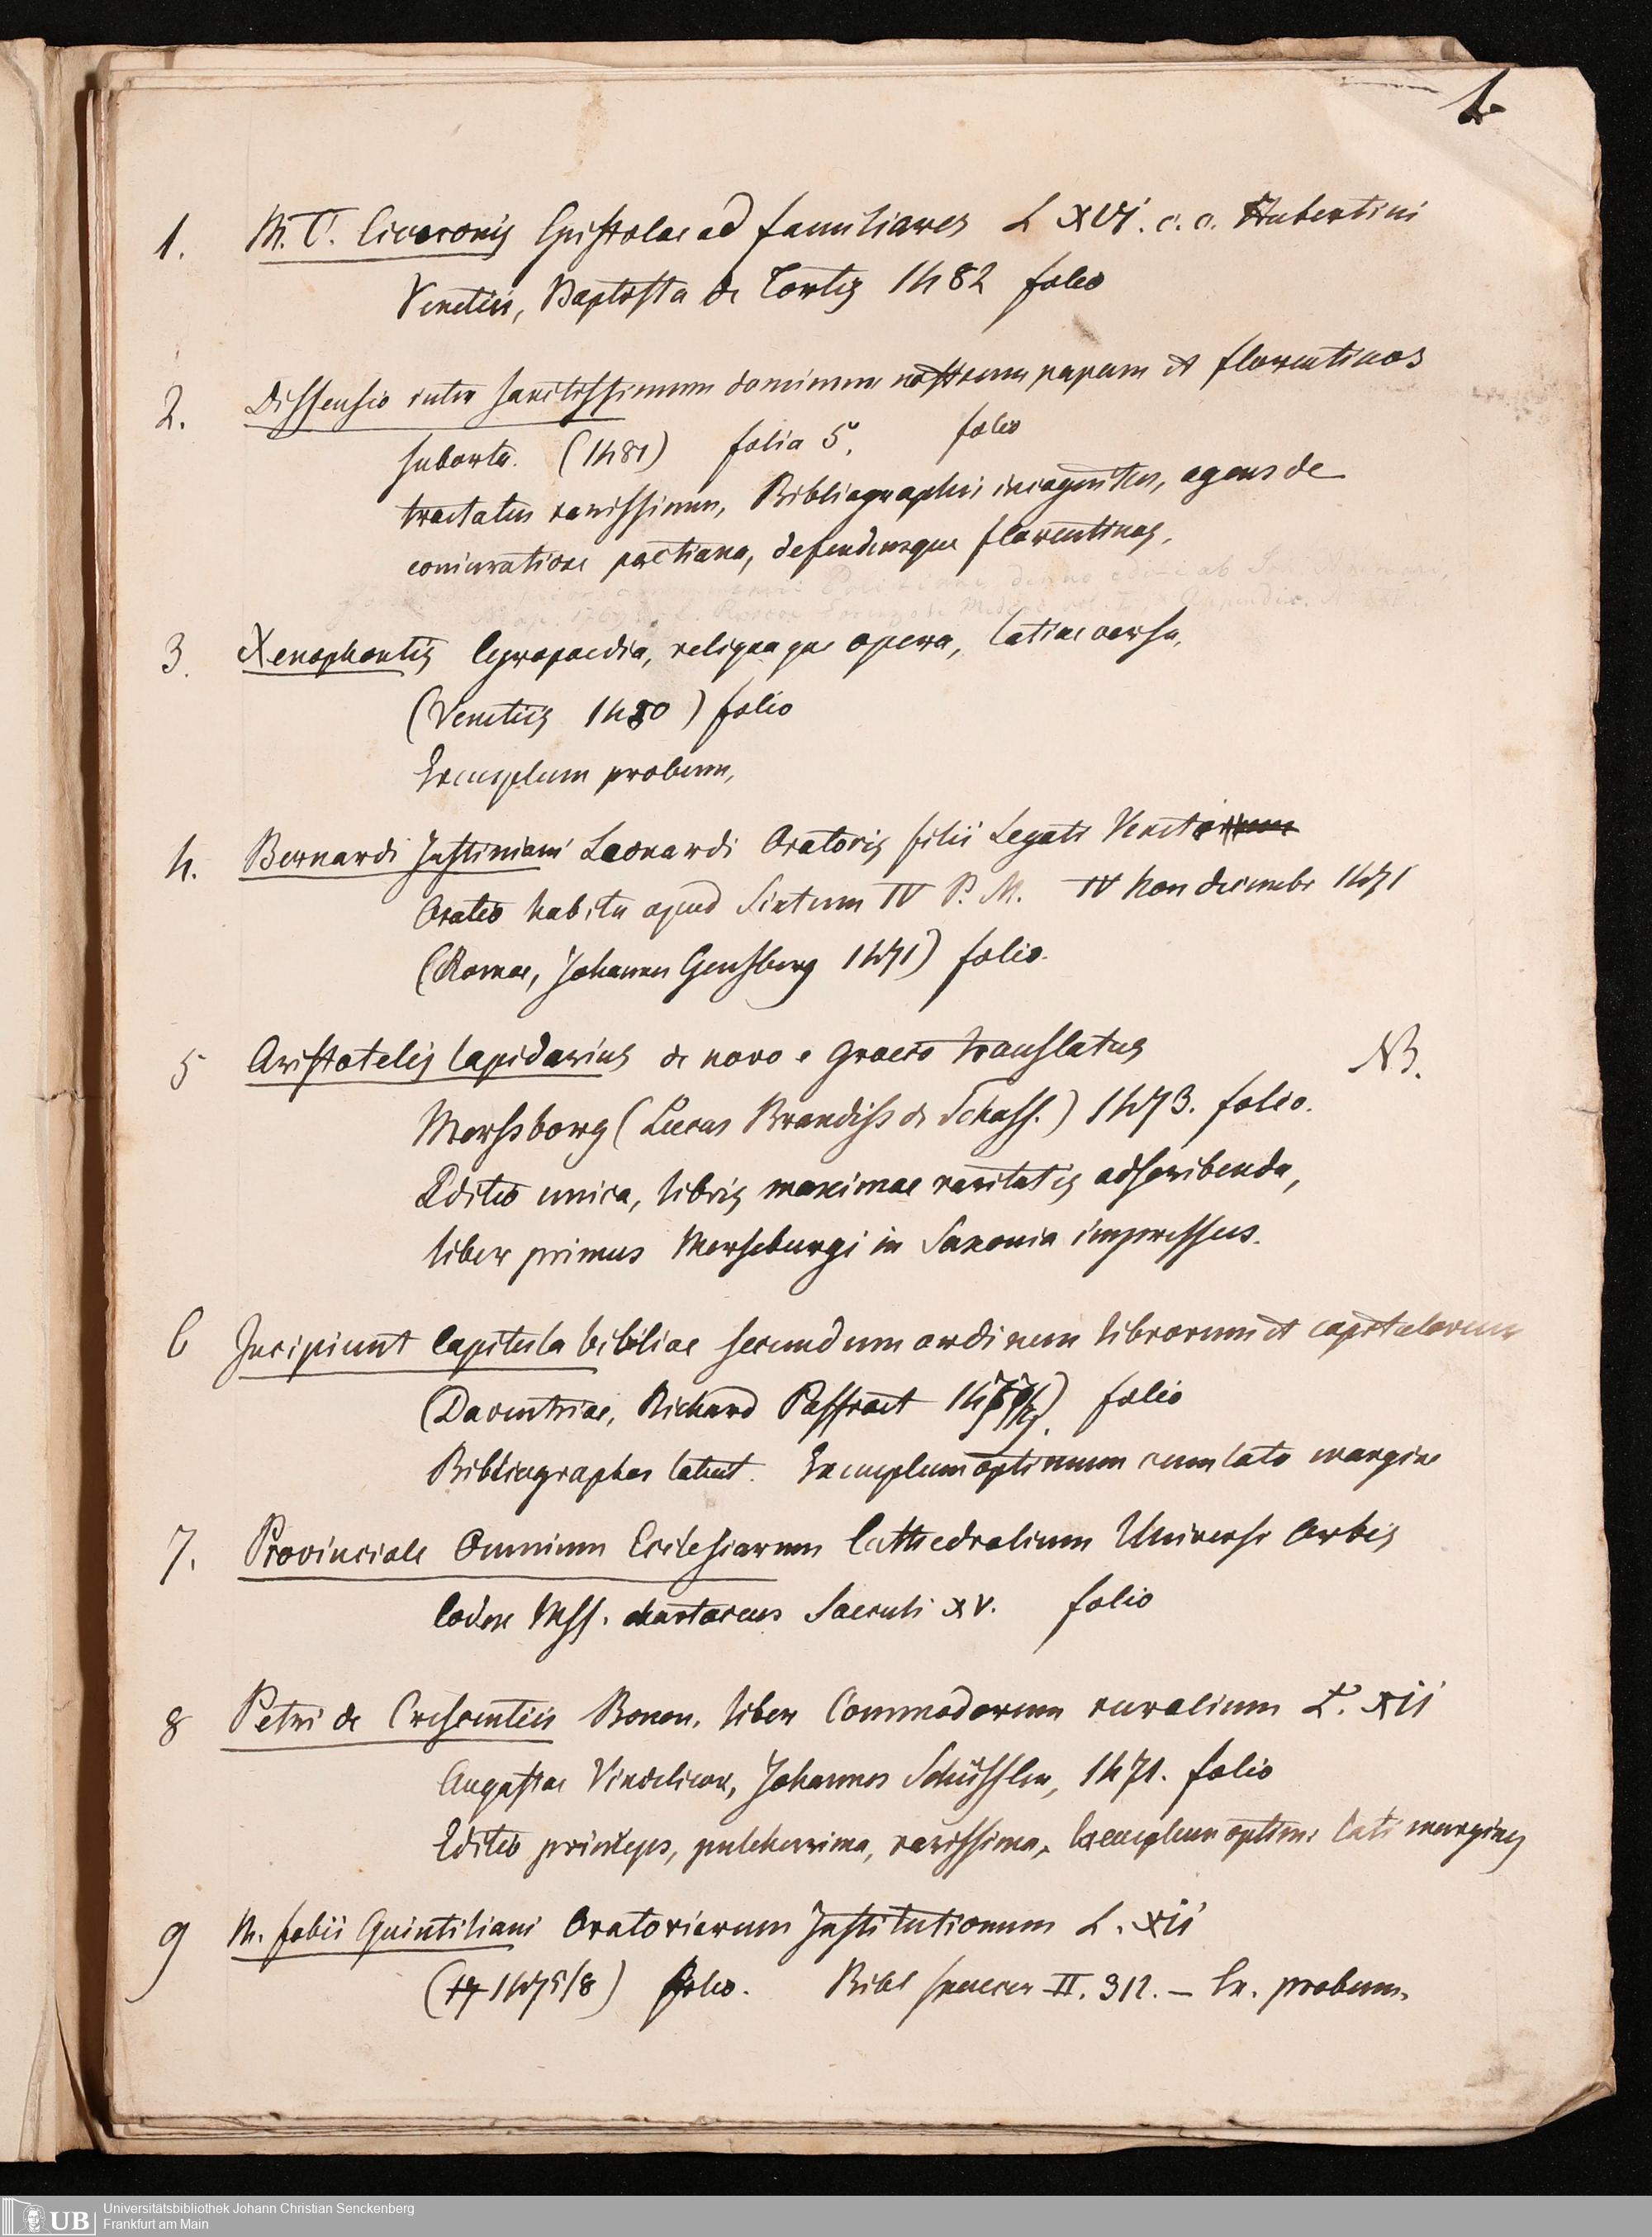 1.
1. M. T. Ciceronis Epistolae ad familiares L XVI. c. c. Hubertini
Venetiis, Baptista de Tortis 1482 folio
2. Dissensio inter sanctissimum dominum nostrum papam et florentinos
suborta. (1481) folia 5. folio
tractatus rarissimus, Bibliographis incognitus, agens de
coniuratione pactiana, defendensque florentinos.
denuo ab
3. Xenophontis Cyropaedia, reliquaque opera, latine versa.
(Venetiis 1480) folio
Exemplum probum.
4. Bernardi Justiniani Leonardi Oratoris filii Legati Veneti
Oratio habita apud Sixtum IV P. M. IV Non decembr 1471
(Romae, Johannes Gensberg 1471) folio.
5 Aristotelis lapidarius de novo e graeco translatus NB.
Mersborg (Lucas Brandiss de Schass.) 1473. folio.
Editio unica, libris maximae raritatis adscribenda,
liber primus Merseburgi in Saxonia impressus.
6 Incipiunt Capitula bibliae secundum ordinem librorum et capitulorum
(Daventriae, Richard Paffraet folio
Bibliographos latuit. Exemplum optimum cum lato margine
7. Provinciale Omnium Ecclesiarum Cathedralium Universi Orbis
Codex Mss. chartaceus Saeculi XV. folio
8 Petri de Crescentiis Bonon. liber Commodorum ruralium L. XII
Augustae Vindelicor, Johannes Schüssler, 1471. folio
Editio princeps, pulcherrima, rarissima, Exemplum optimi lati marginis
9 M. fabii Quintiliani Oratoriarum Institutionum L. XII
(1475/8) folio. Bibl Spencer II. 312. – Ex. probum.
UB Universitätsbibliothek Johann Christian Senckenberg
Frankfurt am Main